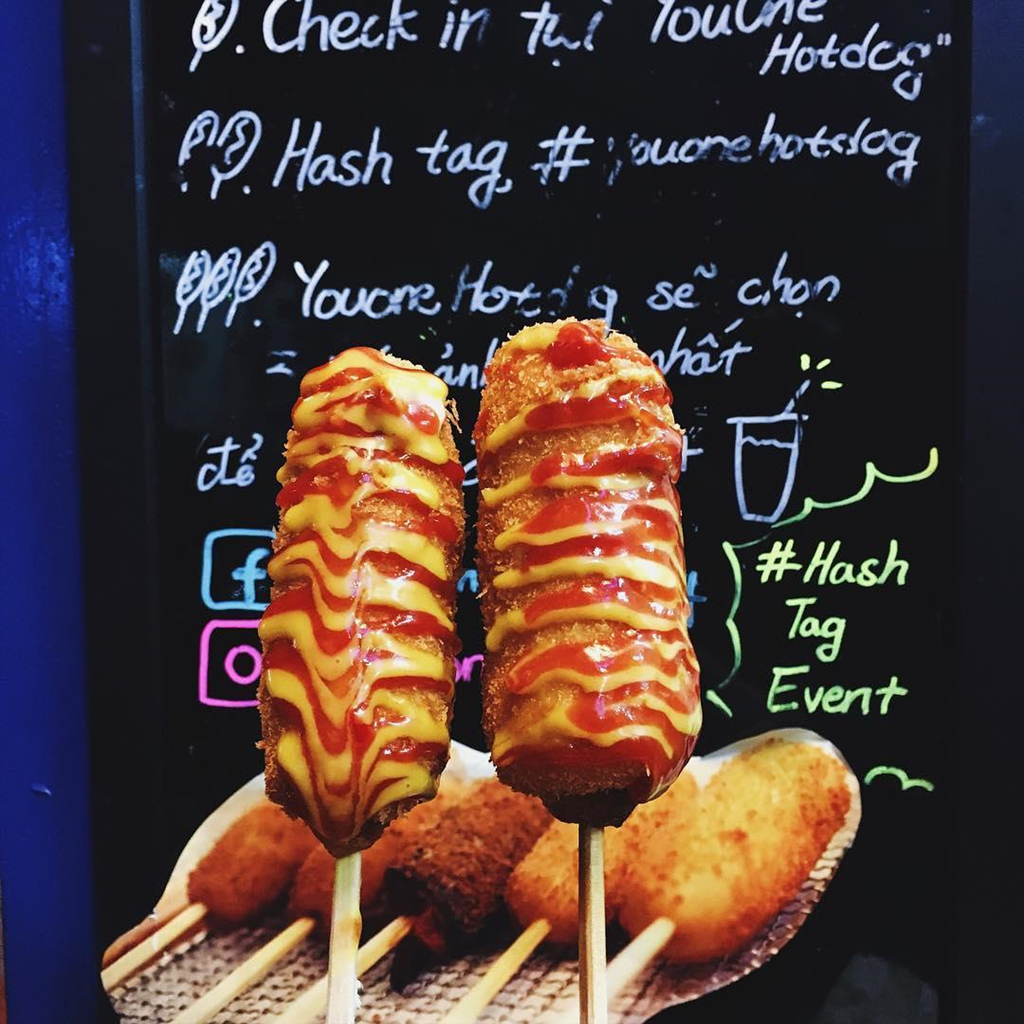 Check in tại "YouOne
Hotdog"
Hash tag #youonehotdog
Youone Hotdog sẽ chọn
ảnh nhất
để
f
#Hash
Tag
Event